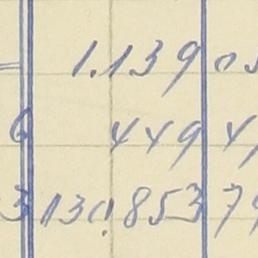 1.139 05
6 449 4
3 130.853 79